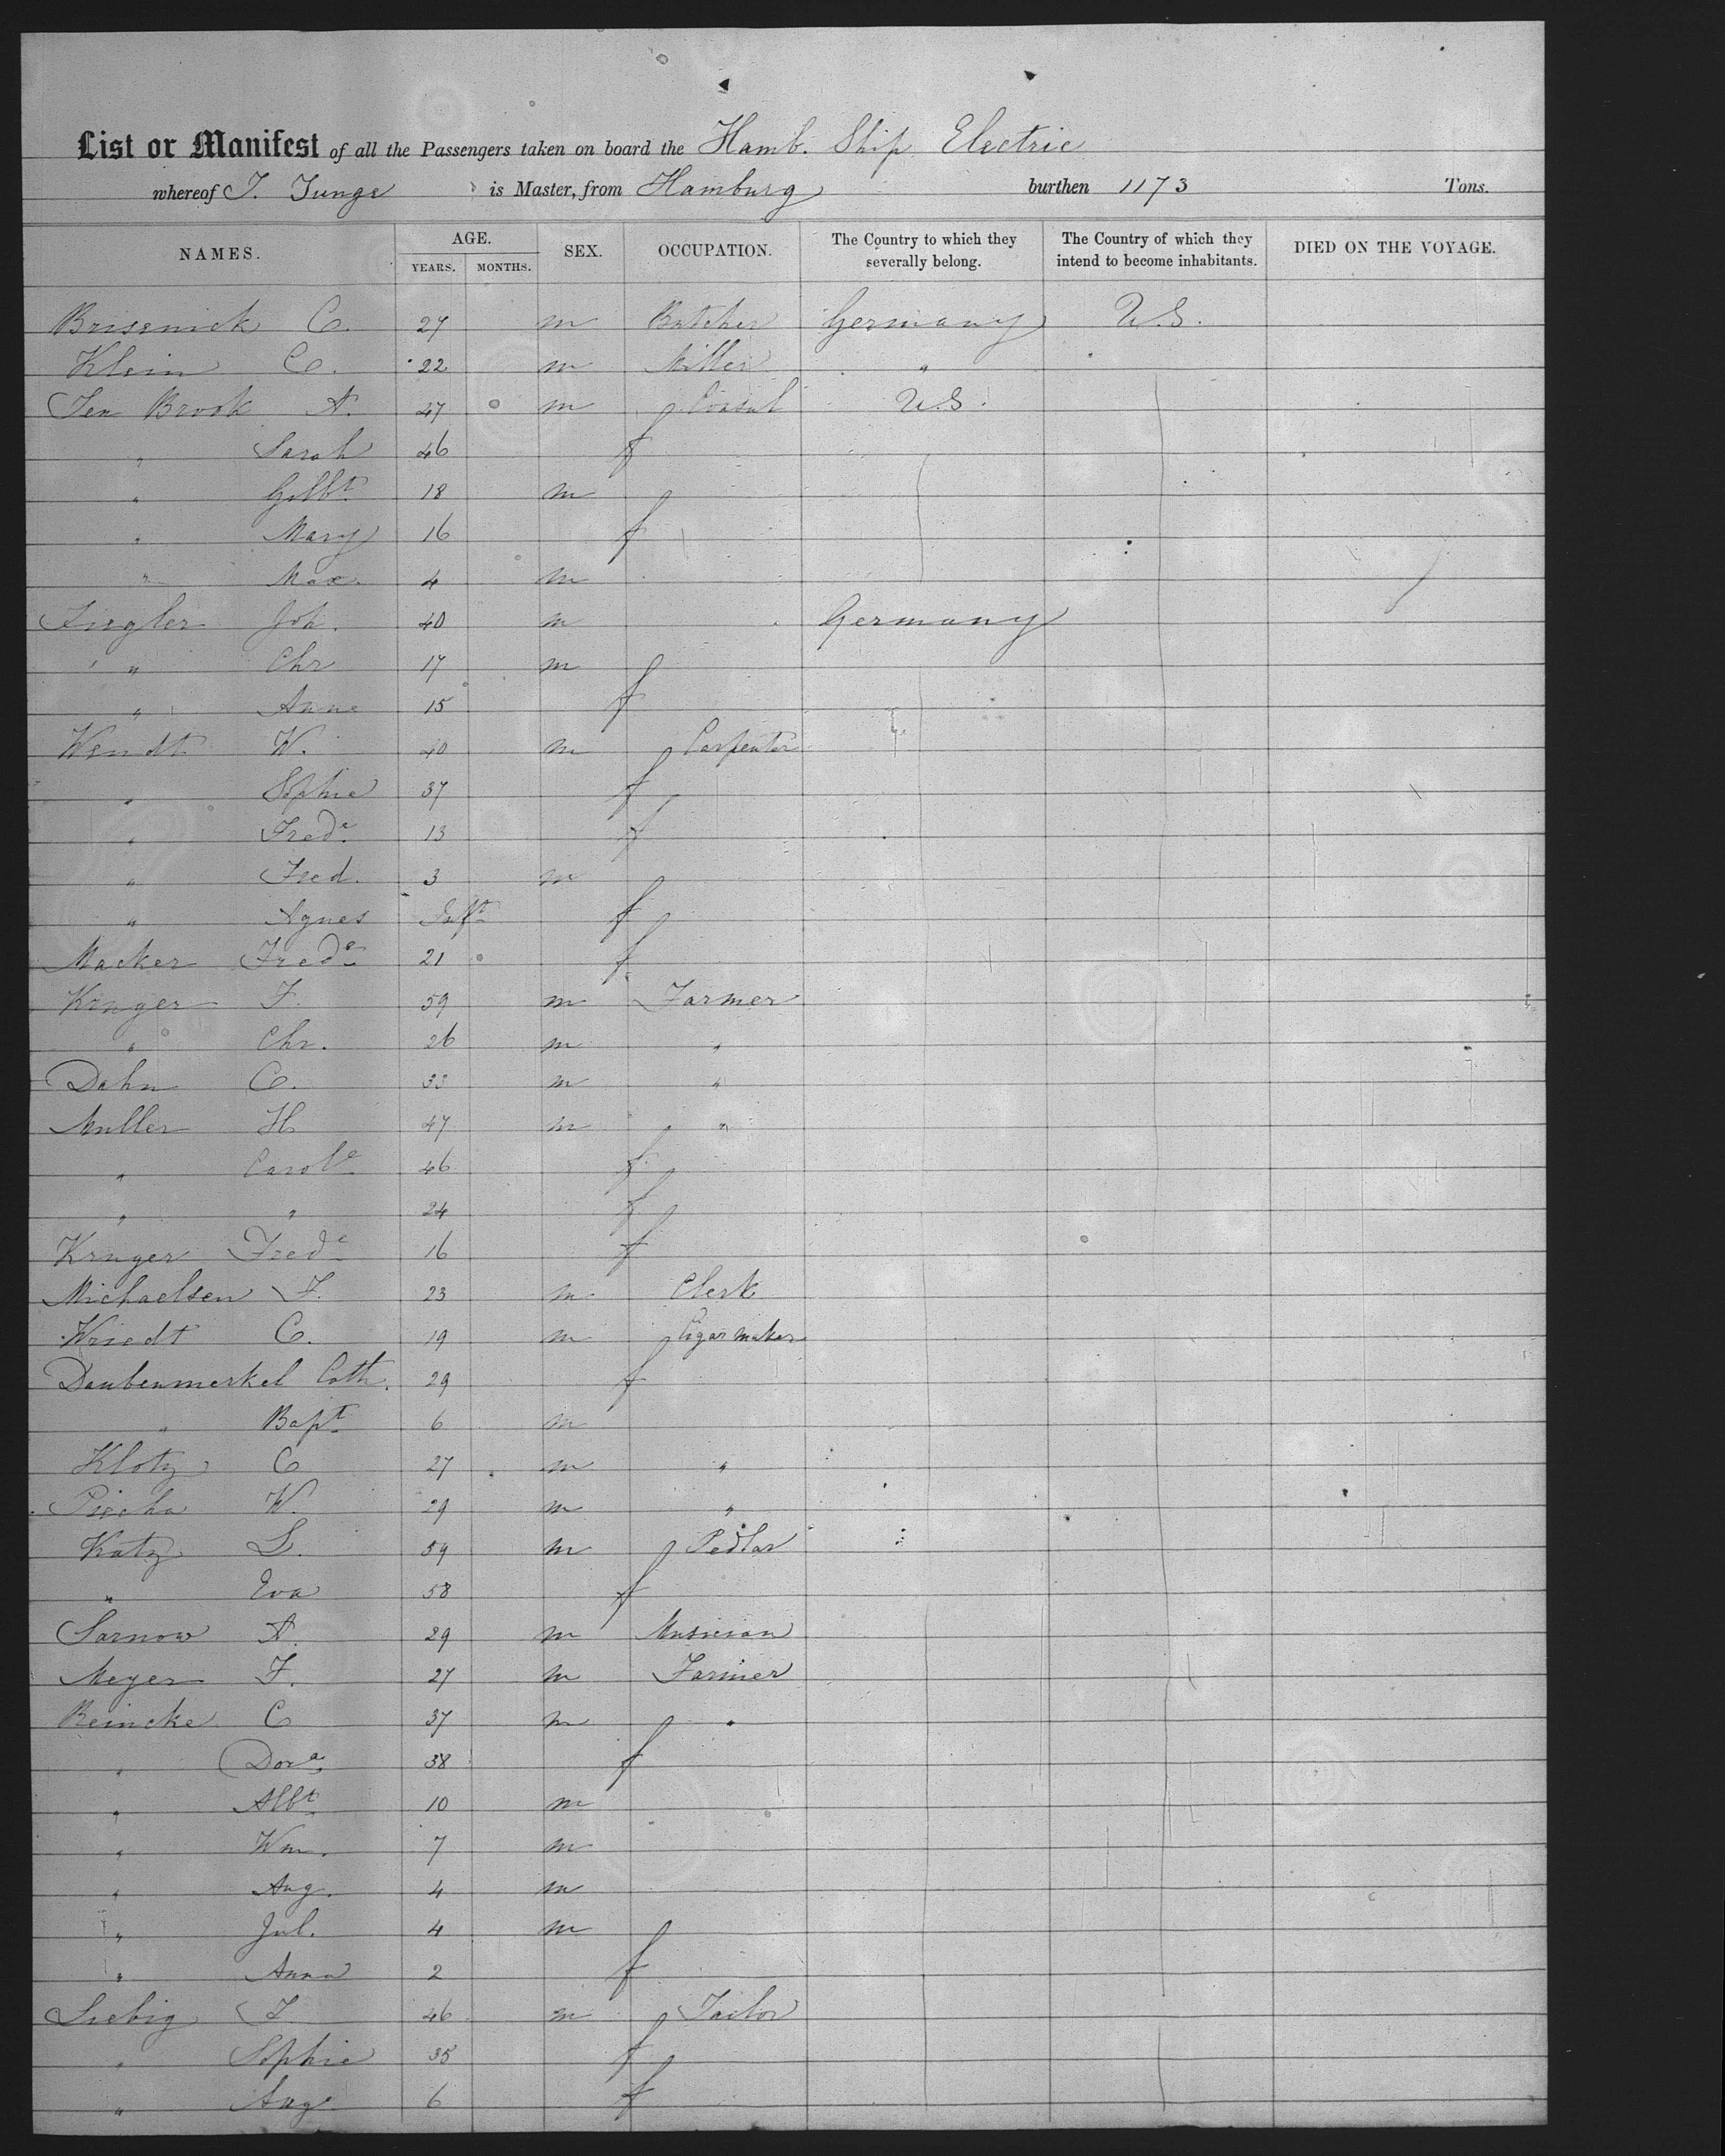 List or Manifest of all the Passengers taken on board the Hamb. Ship Electric
whereof J. Junge is Master, from Hamburg burthen 1173 Tons.
NAMES. AGE. YEARS. MONTHS. SEX. OCCUPATION. The Country to which they severally belong. The Country of which they intend to become inhabitants. DIED ON THE VOYAGE.
Brisenick C. 27 m Butcher Germany U.S.
Klein C. 22 m Miller "
Ten Brook A. 47 m Consul U.S.
" Sarah 46 f
" Gilbt 18 m
" Mary 16 f
" Max. 4 m
Ziegler Joh. 40 m Germany
" Chr 17 m
" Anna 15 f
Wendt W. 40 m Carpenter
" Sophie 37 f
" Frede 13 f
" Fred. 3 m
" Agnes Inft f
Macker Frede 21 f
Kruger F. 59 m Farmer
" Chr. 26 m "
Dahn C. 33 m "
Muller H. 47 m "
" Carole 46 f
" " 24 f
Kruger Frede 16 f
Michaelsen F. 23 m Clerk
Wriedt C. 19 m Cigarmaker
Daubenmerkel Cath. 29 f
" Bapt 6 m
Klotz C 27 m "
Piecha W. 29 m "
Katz L. 59 m Pedlar
" Eva 58 f
Sarnow A. 29 m Musician
Meyer F. 27 m Farmer
Reincke C 37 m "
" Dora 38 f
" Albt 10 m
" Wm. 7 m
" Aug. 4 m
" Jul. 4 m
" Anna 2 f
Liebig F. 46 m Tailor
" Sophie 35 f
" Auge 6 f